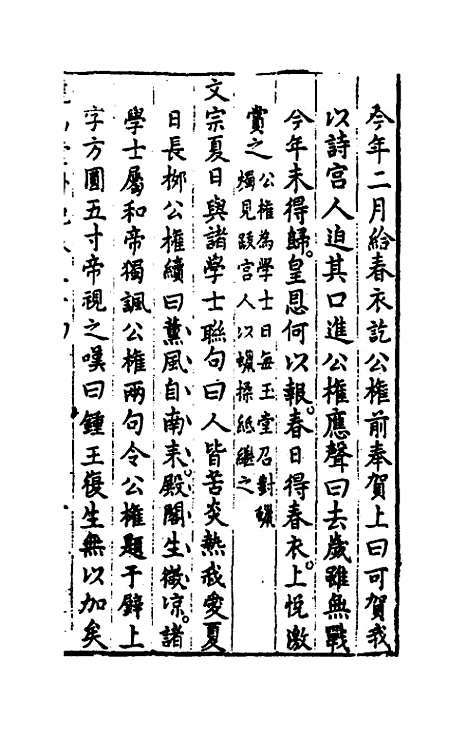 今年二月給春衣訖公權前奉賀上曰可賀我
以詩宮人迫其口進公權應聲曰去歲雖無戰
今年未得歸。皇恩何以報。春日得春衣。上悅激
賞之
公權為學士日每玉堂召對
燭見跋宮人以蠟揉紙繼之
文宗夏日與諸學士聯句曰人皆苦炎熱我愛夏
日長柳公權續曰薰風自南來。殿閣生微凉。諸
學士屬和帝獨諷公權兩句令公權題于壁上
字方圓五寸帝視之嘆曰鍾王復生無以加矣